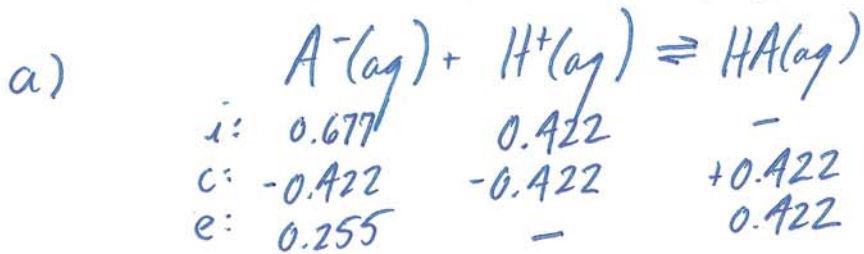 a) A⁻(aq) + H⁺(aq) ⇌ HA(aq)
i: 0.677 0.422 –
c: -0.422 -0.422 +0.422
e: 0.255 – 0.422